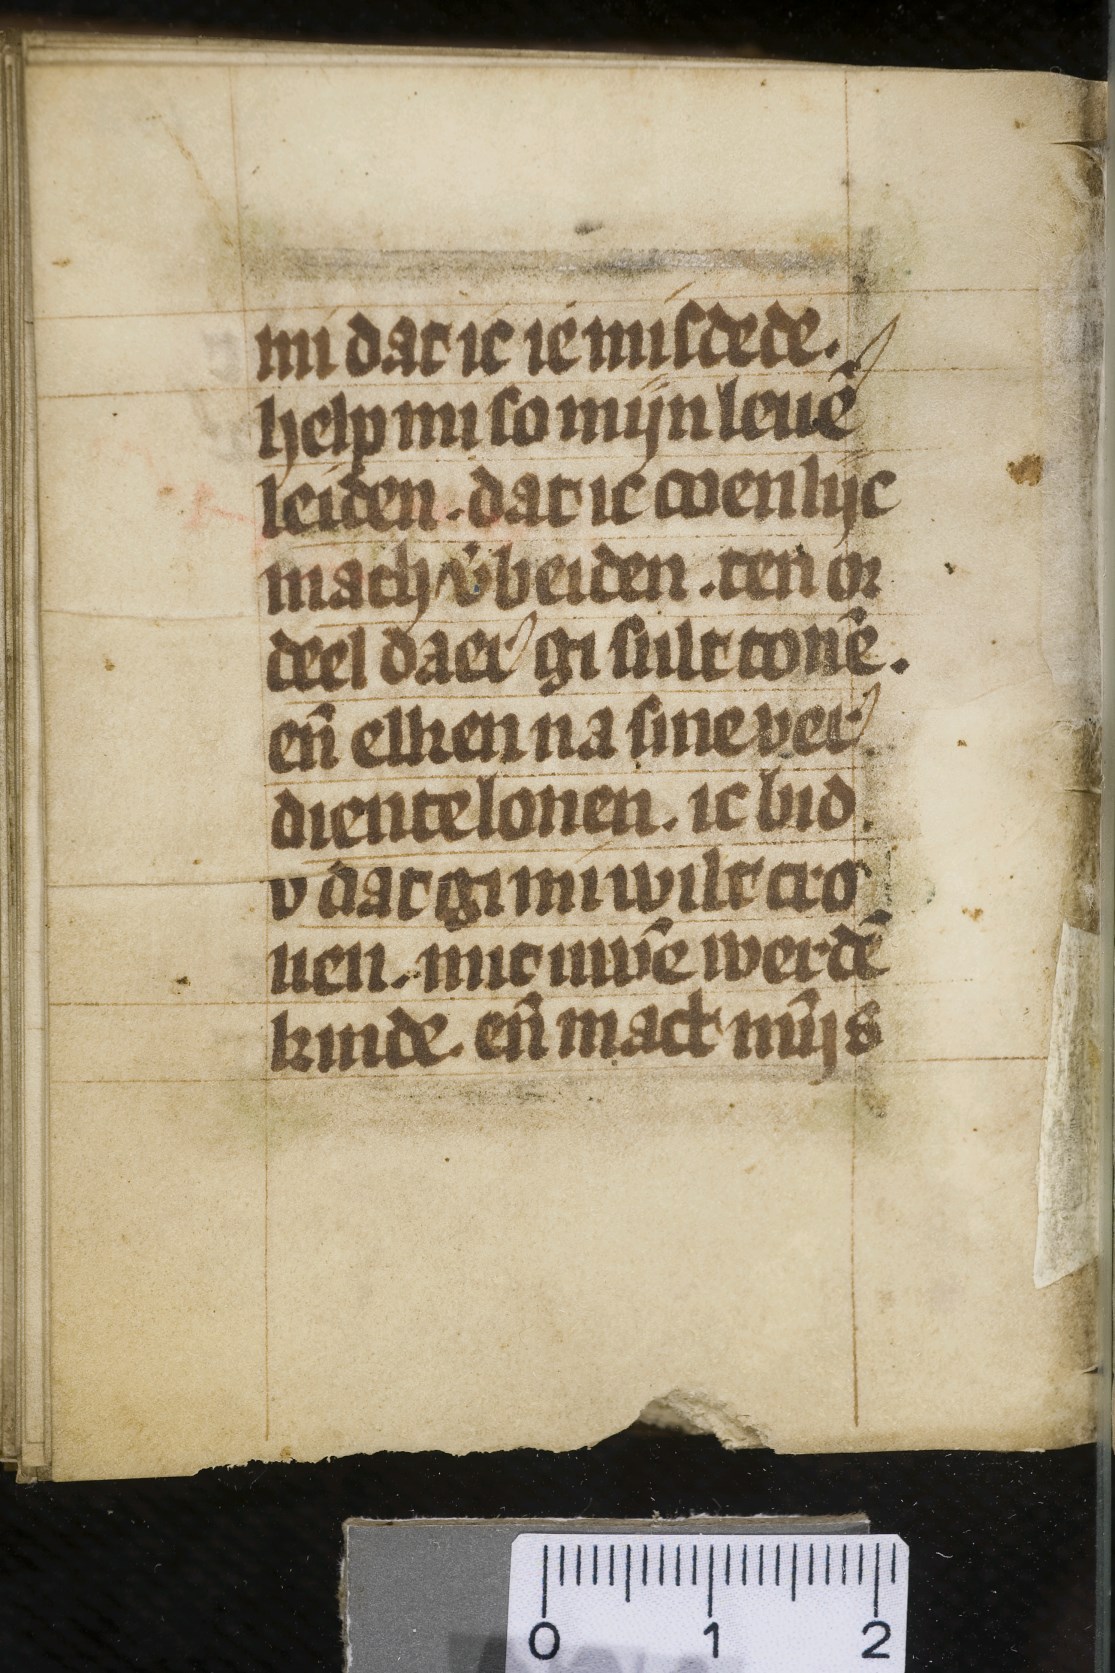 mi dat ic ie misdede.
help mi so mijn leuē
leiden. dat ic coenlijc
mach v̾beiden. ten or
deel daer gi sult tonē.
en̄ elken na sine ver
diente lonen. ic bid
v dat gi mi wilt tro
uen. mit uwē werdē
kinde. en̄ mact mi̅js
0 1 2